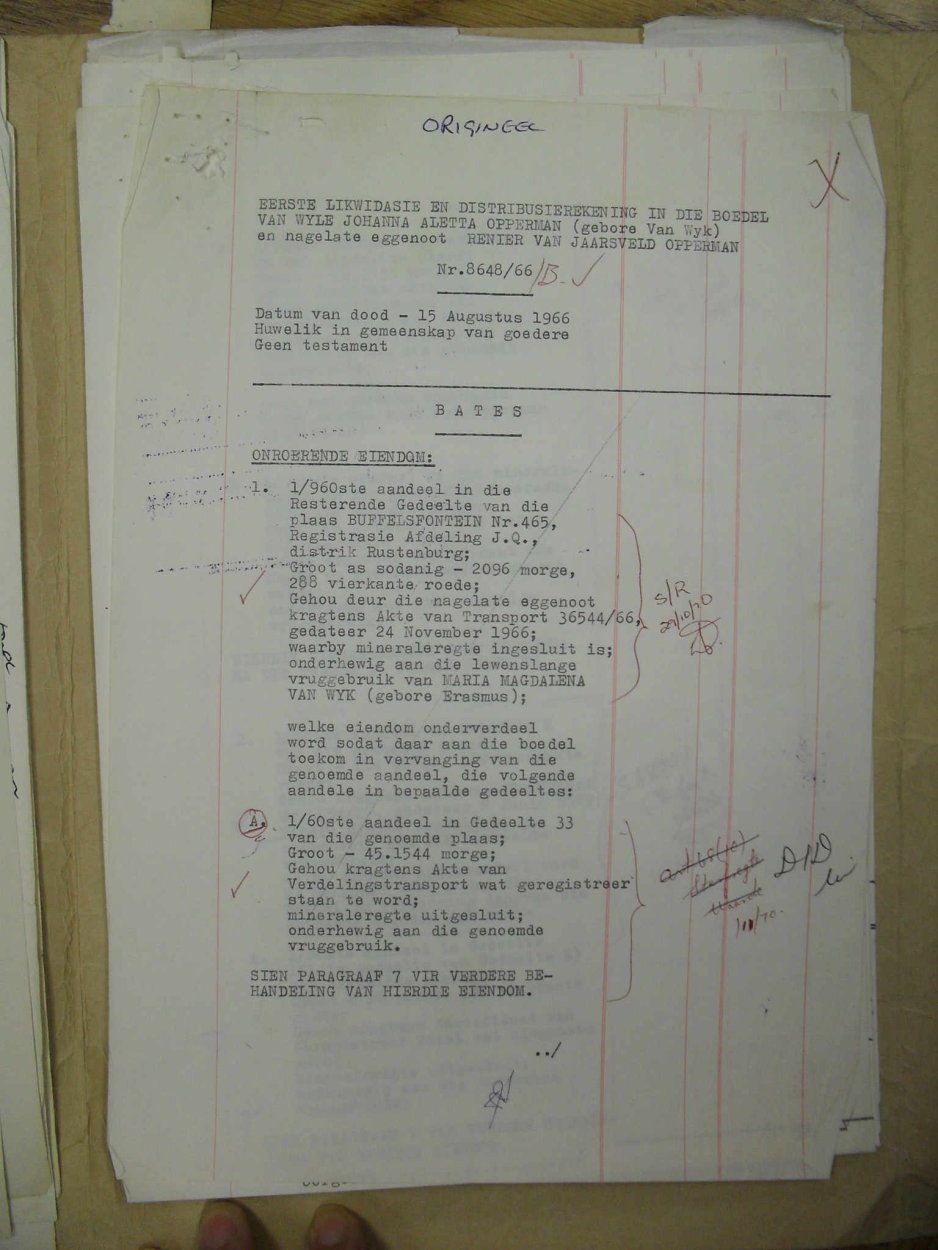 ORIGINEEL
EERSTE LIKWIDASIE EN DISTRIBUSIEREKENING IN DIE BOEDEL
VAN WYLE JOHANNA ALETTA OPPERMAN (gebore Van Wyk)
en nagelate eggenoot RENIER VAN JAARSVELD OPPERMAN
Nr.8648/66/B.
Datum van dood - 15 Augustus 1966
Huwelik in gemeenskap van goedere
Geen testament
B A T E S
ONROERENDE EIENDOM:
1. 1/960ste aandeel in die
Resterende Gedeelte van die
plaas BUFFELSFONTEIN Nr.465,
Registrasie Afdeling J.Q.,
distrik Rustenburg;
Groot as sodanig - 2096 morge,
288 vierkante roede;
Gehou deur die nagelate eggenoot
kragtens Akte van Transport 36544/66,
gedateer 24 November 1966;
waarby mineraleregte ingesluit is;
onderhewig aan die lewenslange
vruggebruik van MARIA MAGDALENA
VAN WYK (gebore Erasmus);
S/R
welke eiendom onderverdeel
word sodat daar aan die boedel
toekom in vervanging van die
genoemde aandeel, die volgende
aandele in bepaalde gedeeltes:
A. 1/60ste aandeel in Gedeelte 33
van die genoemde plaas;
Groot - 45.1544 morge;
Gehou kragtens Akte van
Verdelingstransport wat geregistreer
staan te word;
mineraleregte uitgesluit;
onderhewig aan die genoemde
vruggebruik.
SIEN PARAGRAAF 7 VIR VERDERE BE-
HANDELING VAN HIERDIE EIENDOM.
../